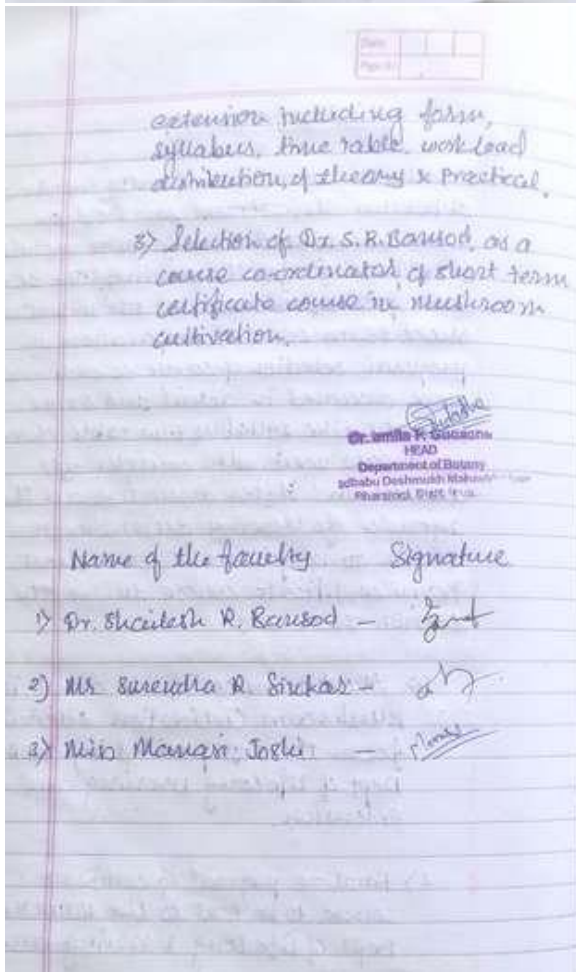 Date
Page No
extension including form,
syllabus, time table, work load
distribution, of theory & Practical.
3) Selection of Dr. S. R. Bansod, as a
course co-ordinator, of short term
certificate course in mushroom
cultivation.
HEAD
Department of Botany
Deshmukh
Name of the faculty Signature
1) Dr. Shailesh R. Bansod –
2) Mr Surendra R Sirkar –
3) Miss Joshi –